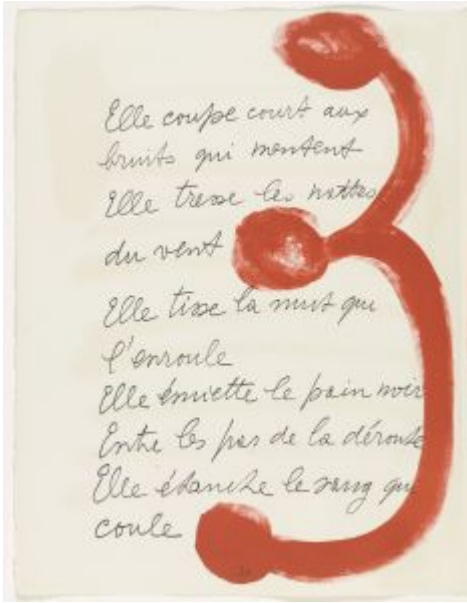 Elle coupe court aux
bruits qui mentent
Elle tresse les nattes
du vent
Elle tisse la nuit qui
l'enroule
Elle émiette le pain noir
Entre les pas de la déroute
Elle étanche le sang qui
coule